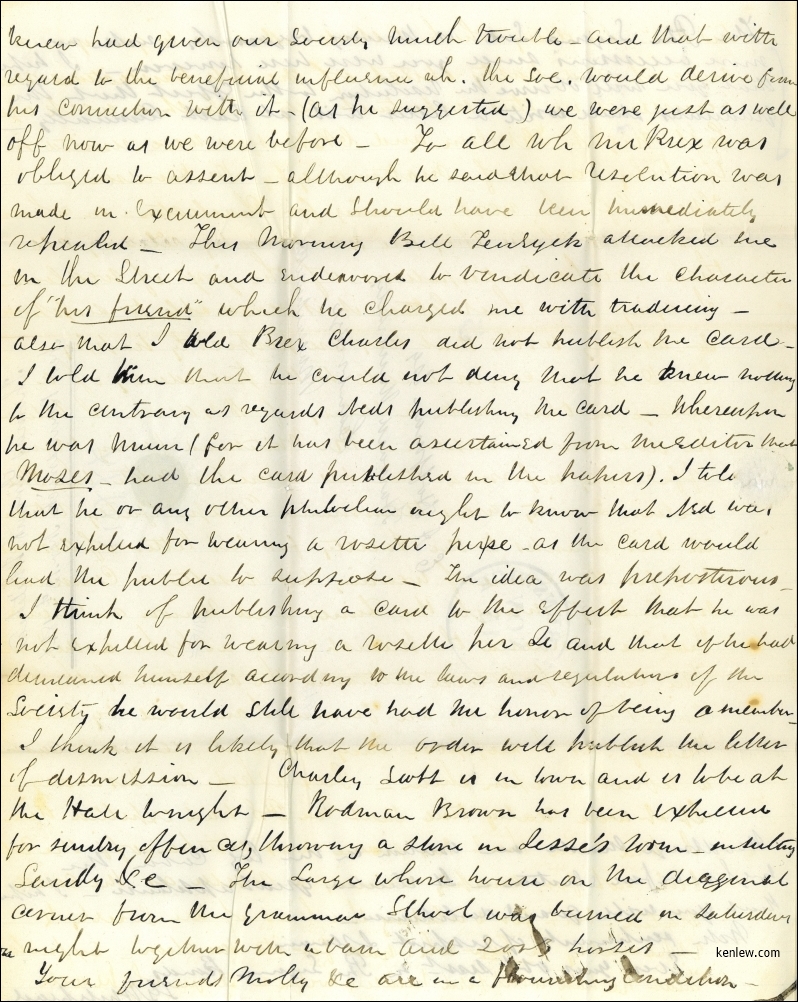 knew had given our Society much trouble – and that with
regard to the beneficial influence wh. the Soc. would derive from
his connection with it – (as he suggested) we were just as well
off now as we were before – To all wh Mr Brex was
obliged to assent – although he said that resolution was
made in excitement and should have been immediately
repealed – This morning Bill TenEyck attacked me
in the Street and endeavored to vindicate the character
of "his friend" which he charged me with traducing –
also that I told Brex Charles did not publish the card –
I told him that he could not deny that he knew nothing
to the contrary as regards Neds publishing the card – Whereupon
he was mum (for it has been ascertained from the Editor that
Moses – had the card published in the papers). I told
that he or any other philoclian ought to know that Ned was
not expelled for wearing a rosette per se – as the card would
lead the public to suppose – The idea was preposterous –
I think of publishing a card to the effect that he was
not expelled for wearing a rosette per se and that if he had
demeaned himself according to the laws and regulations of the
Society he would still have had the honor of being a member –
I think it is likely that the order will publish the letter
of dismission – Charley Scott is in town and is to be at
the Hall tonight – Rodman Brown has been expelled
for sundry offences, throwing a stone in Jesse's room – insulting
Sandy &c – The large whore house on the diagonal
corner from the grammar School was burned on Saturday
night together with a barn and 2 or 3 horses –
Your friends Molly &c are in a flourishing condition –
kenlew.com